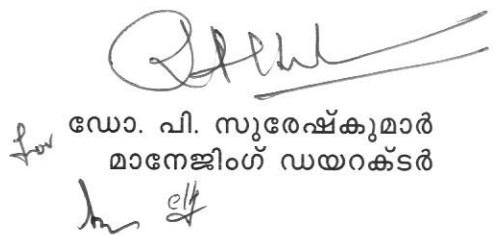 for ഡോ. പി. സുരേഷ്കുമാർ
മാനേജിംഗ് ഡയറക്ടർ